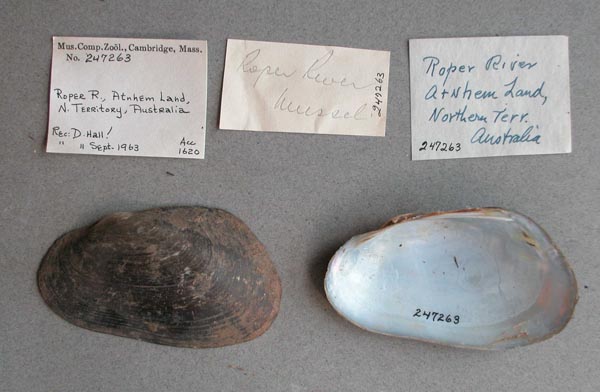 Mus.Comp.Zoöl., Cambridge, Mass.
No. 247263
Roper R., Atnhem Land,
N. Territory, Australia
Rec: D. Hall!
" " Sept. 1963
Acc
1620
Roper River
Mussel.
247263
Roper River
Atnhem Land,
Northern Terr.
Australia
247263
247263